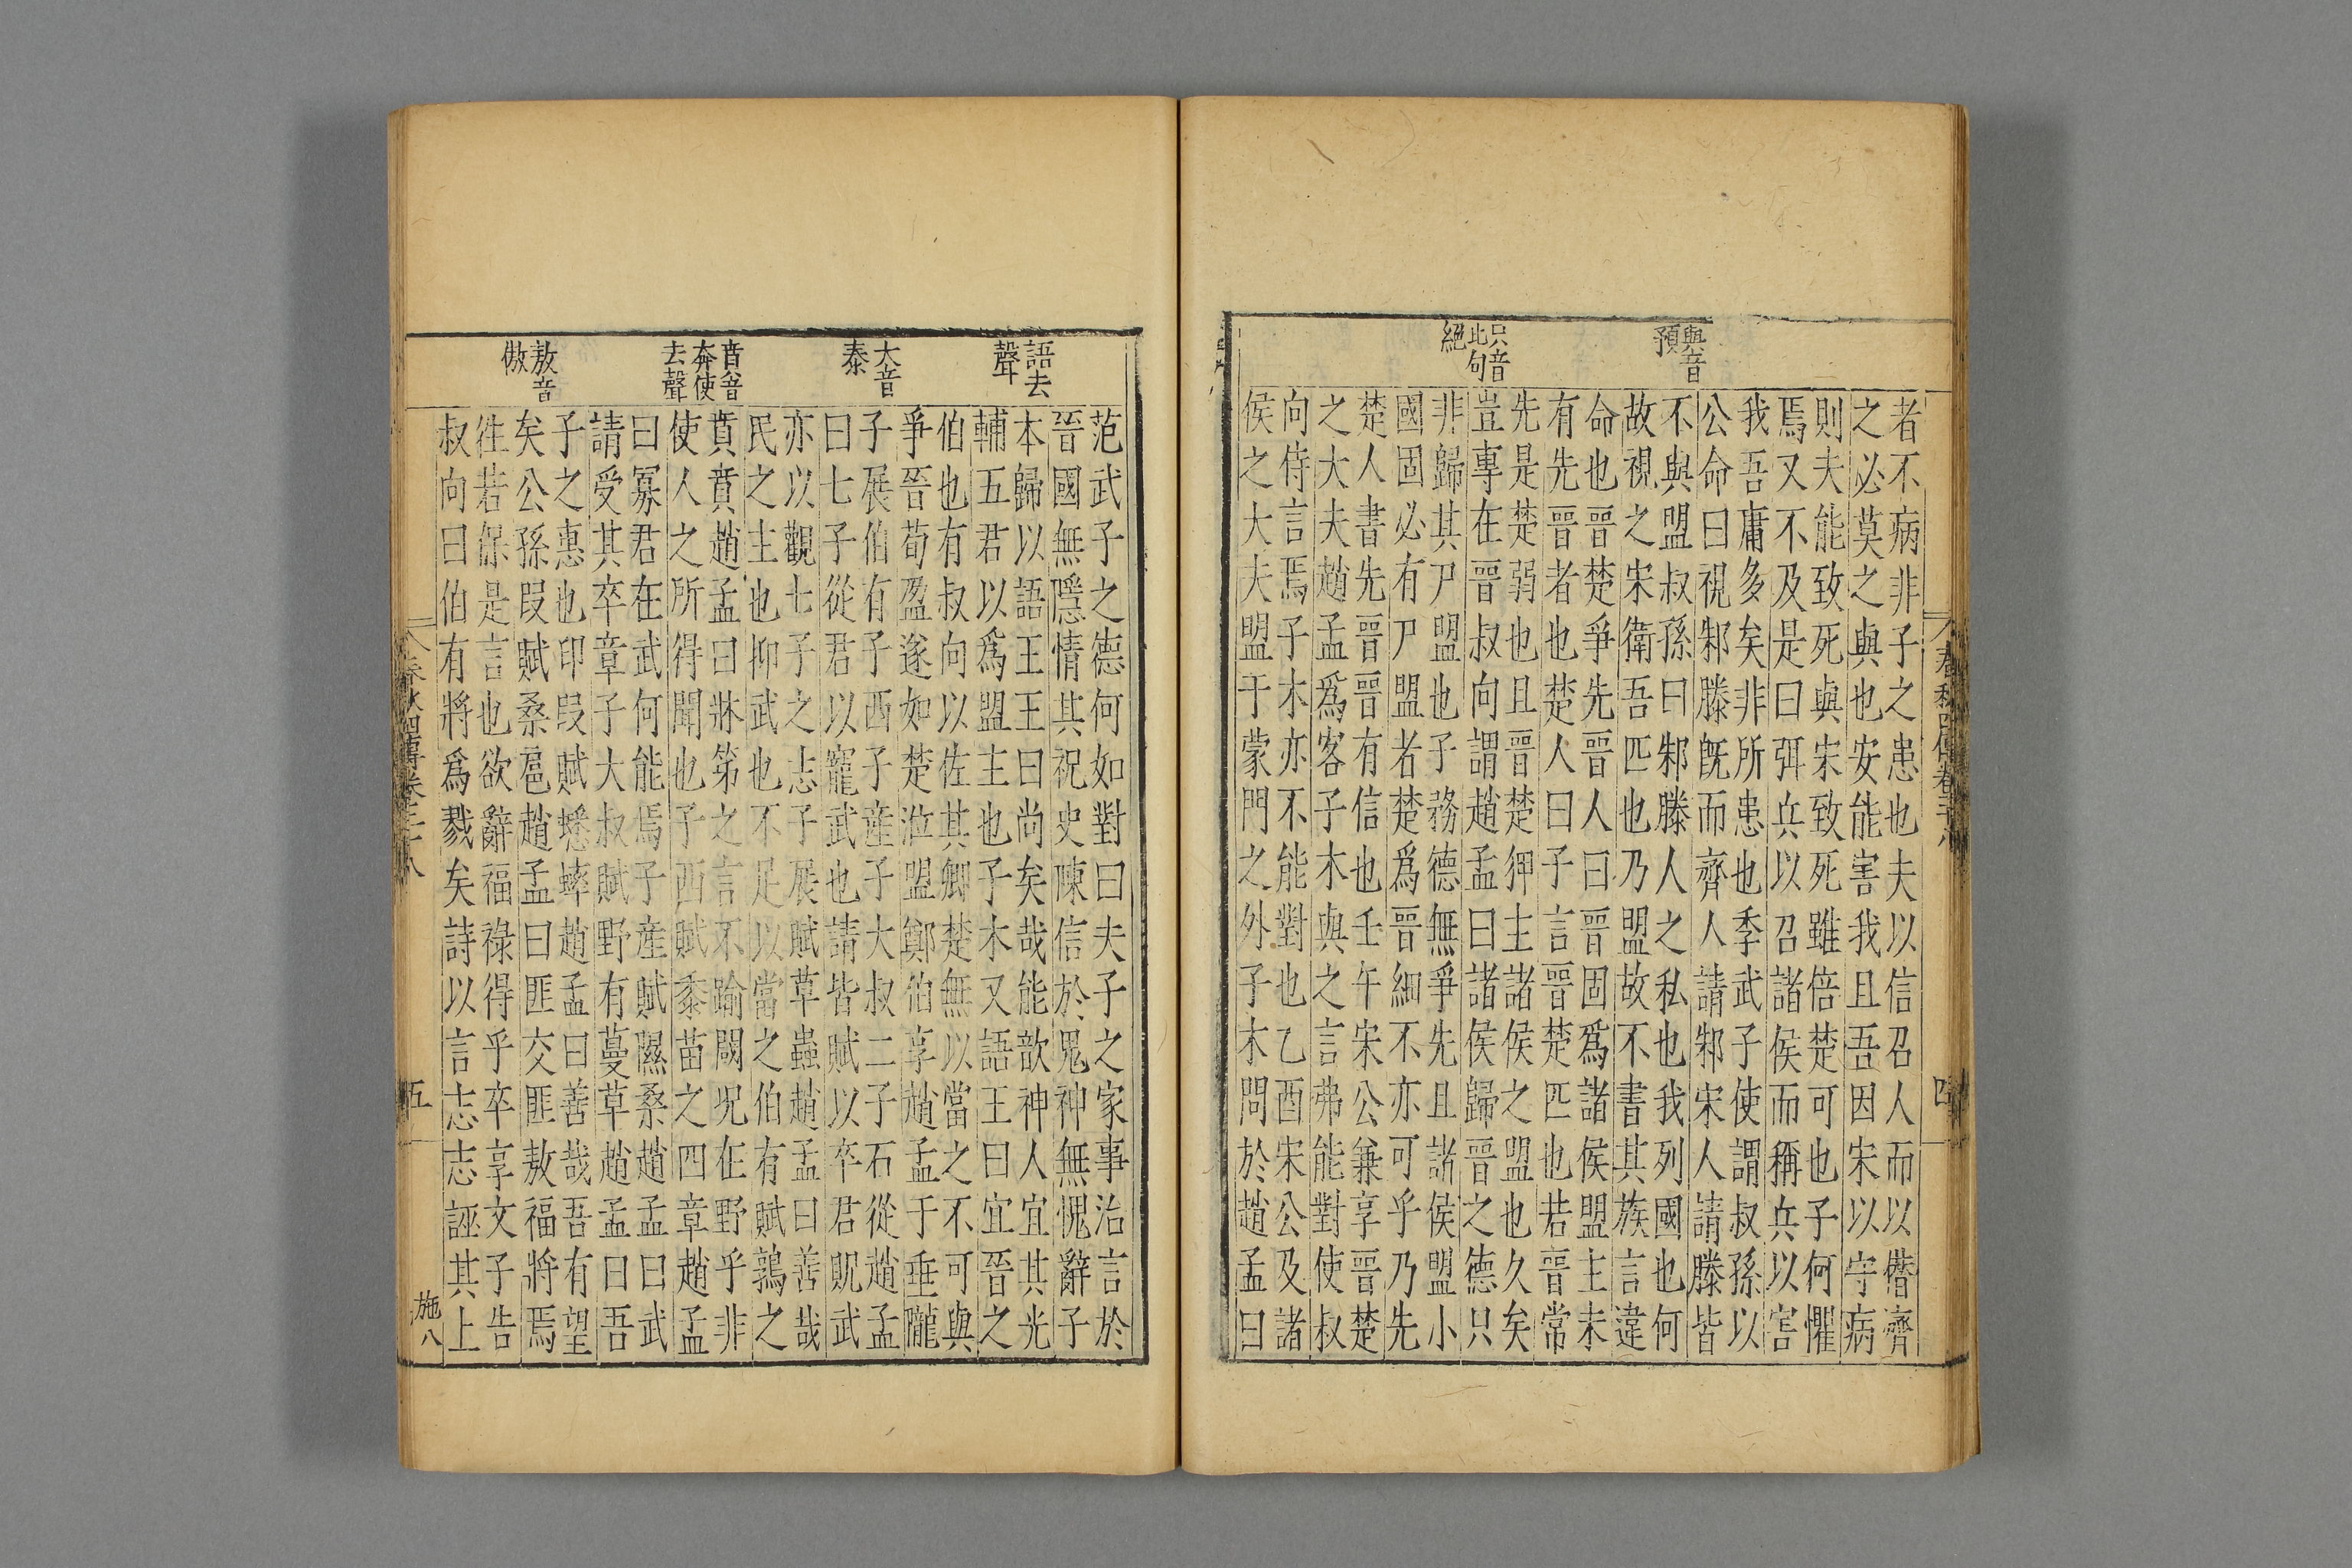 與音
預
只音
此句
絕
者不病非子之患也夫以信召人而以僭齊
之必莫之與也安能害我且吾因宋以守病
則夫能致死與宋致死雖倍楚可也子何懼
焉又不及是曰弭兵以召諸侯而稱兵以害
我吾庸多矣非所患也季武子使謂叔孫以
公命曰視邾滕旣而齊人請邾宋人請滕皆
不與盟叔孫曰邾滕人之私也我列國也何
故視之宋衛吾匹也乃盟故不書其族言違
命也晉楚爭先晉人曰晉固爲諸侯盟主未
有先晉者也楚人曰子言晉楚匹也若晉常
先是楚弱也且晉楚狎主諸侯之盟也久矣
豈專在晉叔向謂趙孟曰諸侯歸晉之德只
非歸其尸盟也子務德無爭先且諸侯盟小
國固必有尸盟者楚爲晉細不亦可乎乃先
楚人書先晉晉有信也壬午宋公兼享晉楚
之大夫趙孟爲客子木與之言弗能對使叔
向侍言焉子木亦不能對也乙酉宋公及諸
侯之大夫盟于蒙門之外子木問於趙孟曰
春秋四傳卷二十八
四
語去
聲
大音
泰
奔使
去聲
敖音
傲
范武子之德何如對曰夫子之家事治言於
晉國無隱情其祝史陳信於鬼神無愧辭子
本歸以語王王曰尚矣哉能歆神人宜其光
輔五君以爲盟主也子木又語王曰宜晉之
伯也有叔向以佐其卿楚無以當之不可與
爭晉荀盈遂如楚涖盟鄭伯享趙孟于垂隴
子展伯有子西子產子大叔二子石從趙孟
曰七子從君以寵武也請皆賦以卒君貺武
亦以觀七子之志子展賦草蟲趙孟曰善哉
民之主也抑武也不足以當之伯有賦鶉之
賁賁趙孟曰牀第之言不踰閾況在野乎非
使人之所得聞也子西賦黍苗之四章趙孟
曰寡君在武何能焉子產賦隰桑趙孟曰武
請受其卒章子大叔賦野有蔓草趙孟曰吾
子之惠也印段賦蟋蟀趙孟曰善哉吾有望
矣公孫段賦桑扈趙孟曰匪交匪敖福將焉
往若保是言也欲辭福祿得乎卒享文子告
叔向曰伯有將爲戮矣詩以言志志誣其上
春秋四傳卷二十八
五
施八